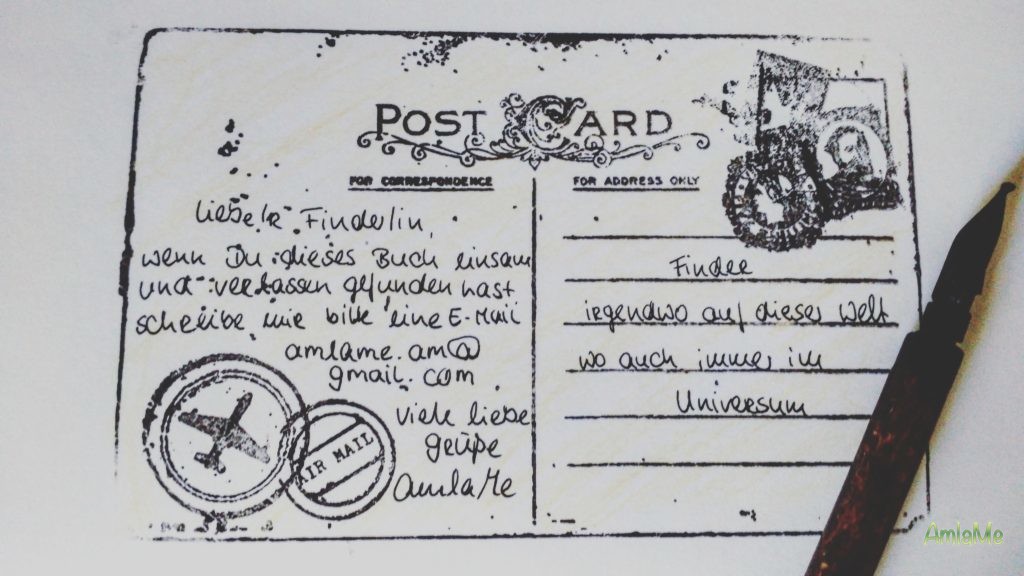 POST CARD
FOR CORRESPONDENCE
Liebe/r Finder/in,
wenn Du dieses Buch einsam
und verlassen gefunden hast
schreibe mir bitte eine E-Mail
amlame.am@
gmail.com
viele liebe
Grüße
AmlaMe
AIR MAIL
FOR ADDRESS ONLY
Finder
irgendwo auf dieser Welt
wo auch immer im
Universum
AmlaMe